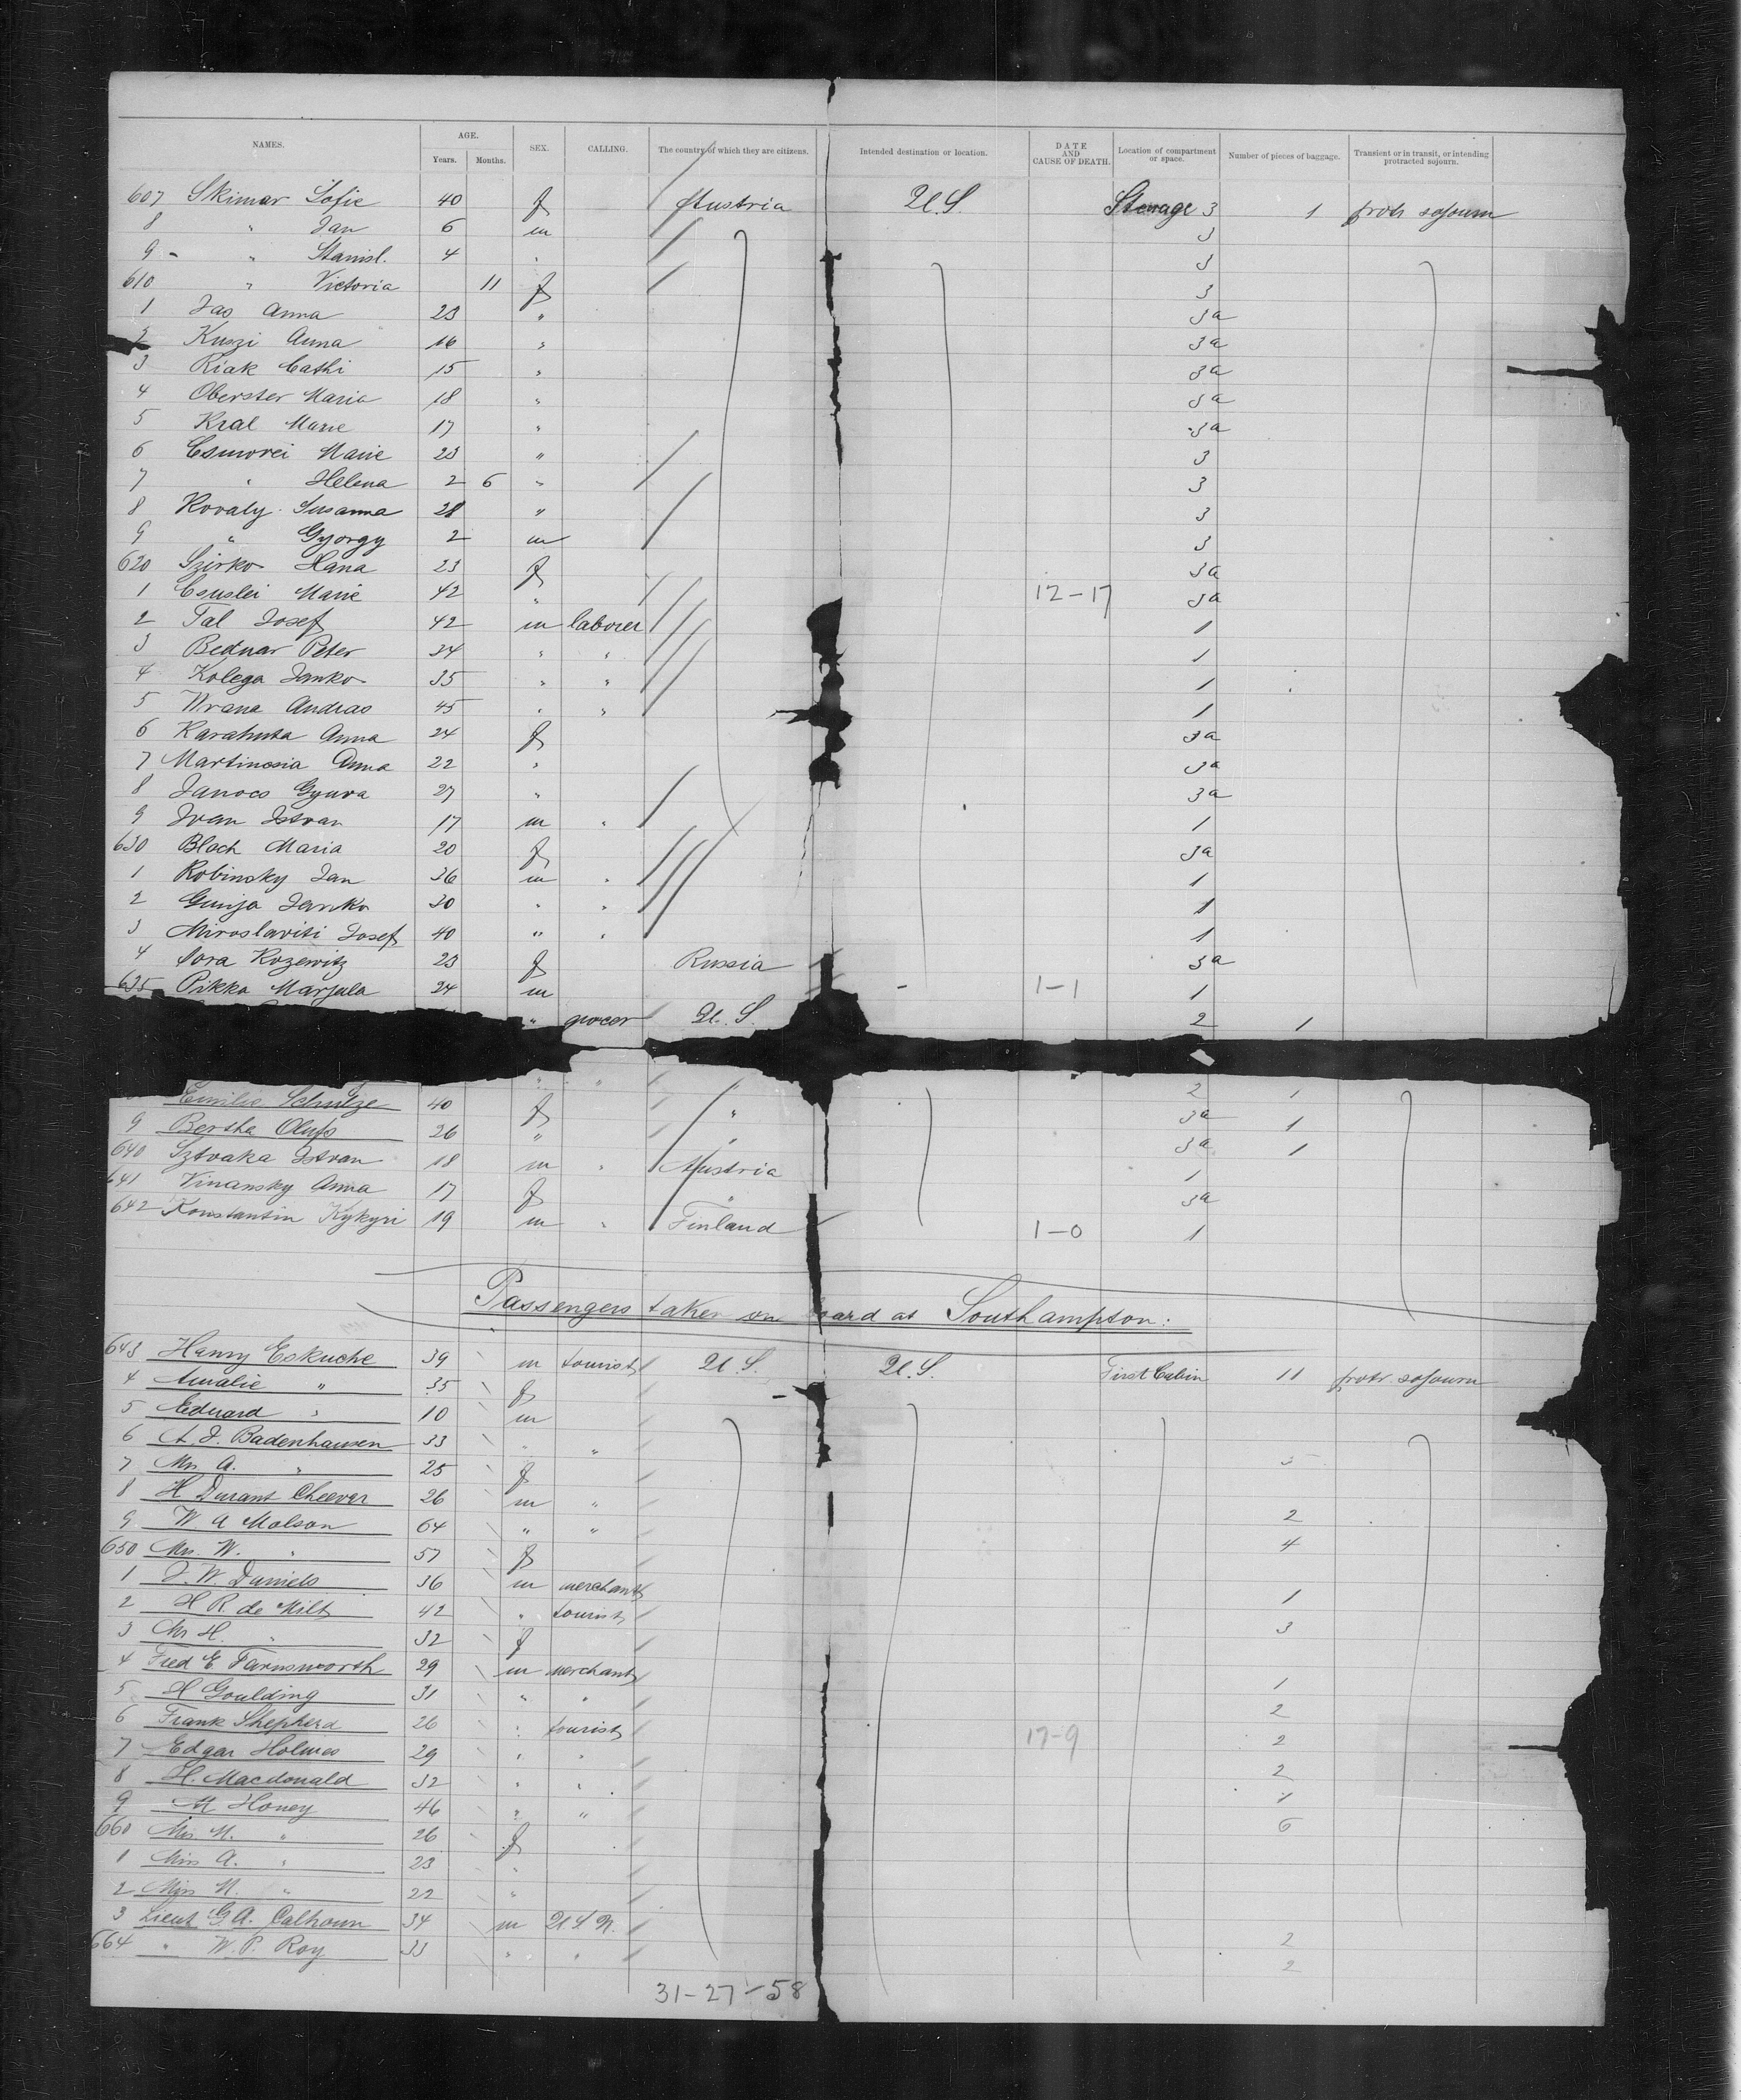 NAMES. AGE. Years. Months. SEX. CALLING. The country of which they are citizens. Intended destination or location. DATE AND CAUSE OF DEATH. Location of compartment or space. Number of pieces of baggage. Transient or in transit, or intending protracted sojourn.
607 Skimar Sofie 40 f Austria U.S. Sterage 3 1 protr sojourn
8 " Jan 6 m 3
9 - " Stanisl. 4 " 3
610 " Victoria 11 f 3
1 Jas Anna 23 " 3a
2 Kuszi Anna 16 " 3a
3 Riak Cathi 15 " 3a
4 Oberster Maria 18 " 3a
5 Kral Marie 17 " 3a
6 Csmorei Marie 23 " 3
7 " Helena 2 6 " 3
8 Kovaly Susanna 28 " 3
9 " Gyorgy 2 m 3
620 Szirko Hana 23 f 3a
1 Csuslei Marie 42 " 12-17 3a
2 Tal Josef 42 m laborer 1
3 Bednar Peter 34 " " 1
4 Kolega Janko 35 " " 1
5 Wrana Andras 45 " " 1
6 Karahuta Anna 24 f 3a
7 Martinosia Anna 22 " 3a
8 Janocs Gyura 27 " 3a
9 Ivan Istvan 17 m " 1
630 Blach Maria 20 f 3a
1 Robinsky Jan 36 m " 1
2 Gunja Janko 30 " " 1
3 Miroslaviti Josef 40 " " 1
4 Sora Kozewitz 23 f Russia 3a
635 Pikka Marjala 24 m 1-1 1
" grocer U.S. 2 1
" " 2 1
Emilie Schultze 40 f " 3a 1
9 Bertha Olufs 26 " " 3a 1
640 Sztvaka Istvan 18 m " Austria 1
641 Vinansky Anna 17 f " 3a
642 Konstantin Kykyri 19 m " Finland 1-0 1
Passengers taken on board at Southampton:
643 Henry Eskuche 39 m tourist U.S. U.S. First Cabin 11 protr. sojourn
4 Amalie " 35 f
5 Eduard " 10 m
6 A. J. Badenhausen 33 " " 5
7 Mrs. A. " 25 f
8 H Durant Cheever 26 m " 2
9 W. A Molson 64 " " 4
650 Mrs. W. " 57 f
1 J. W. Daniels 36 m merchant 1
2 H R de Milt 42 " tourist 3
3 Mrs H. " 32 f
4 Fred E Farnsworth 29 m merchant 1
5 H Goulding 31 " " 2
6 Frank Shepherd 26 " tourist 17-9 2
7 Edgar Holmes 29 " " 2
8 H. Macdonald 32 " " 1
9 M Honey 46 " " 6
660 Mrs. M. " 26 f
1 Miss A. " 23 "
2 Miss M. " 22 "
3 Lieut G. A. Calhoun 34 m U S N. 2
664 " W. P. Roy 33 " " 2
31-27-58